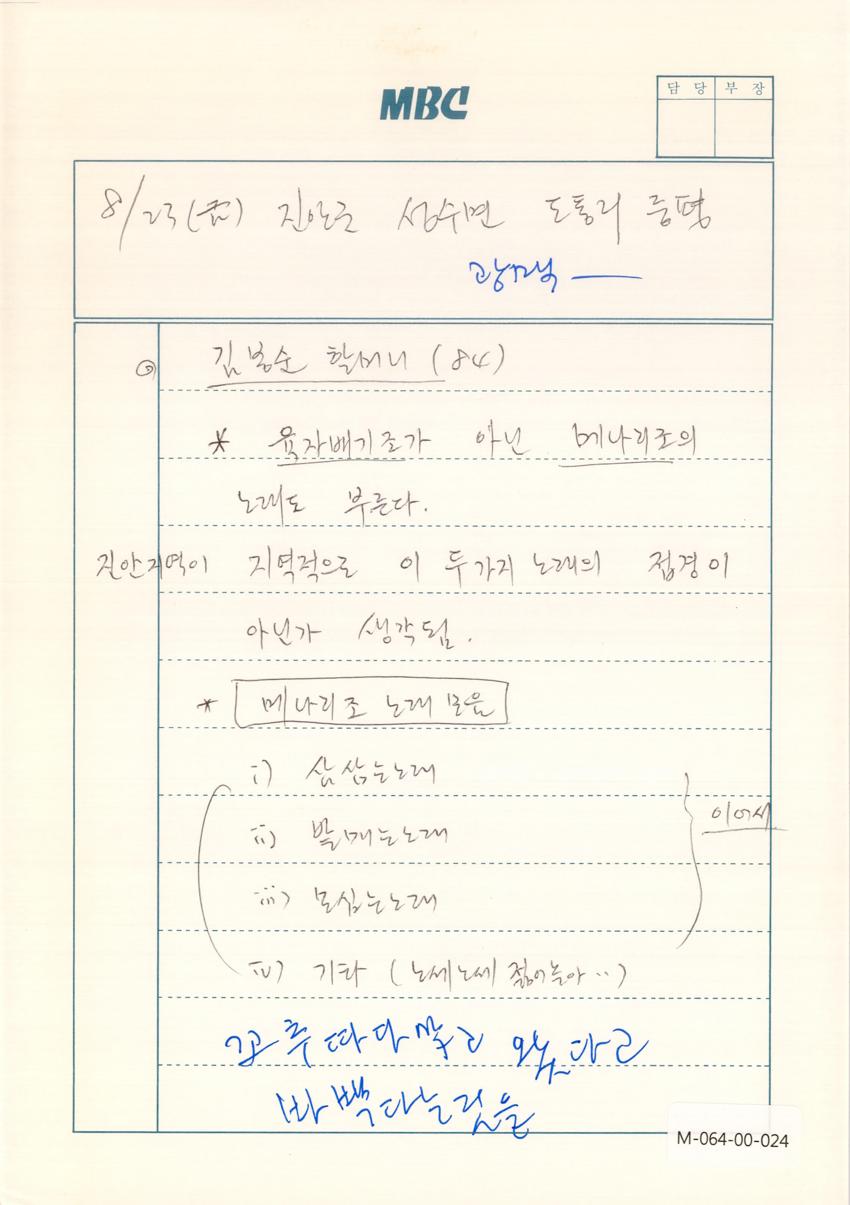 MBC
담당 부장
8/23(금) 진안군 성수면 도통리 중평
김봉순 할머니 (84)
* 육자배기조가 아닌 메나리조의
노래도 부른다.
진안지역이 지역적으로 이 두가지 노래의 접경이
아닌가 생각됨.
* 메나리조 노래 모음
i) 삼삼는노래
ii) 밭매는노래
iii) 모심는노래
이어서
iv) 기타 (노세노세 젊어놀아..)
고추따다말고 왔다고
M-064-00-024